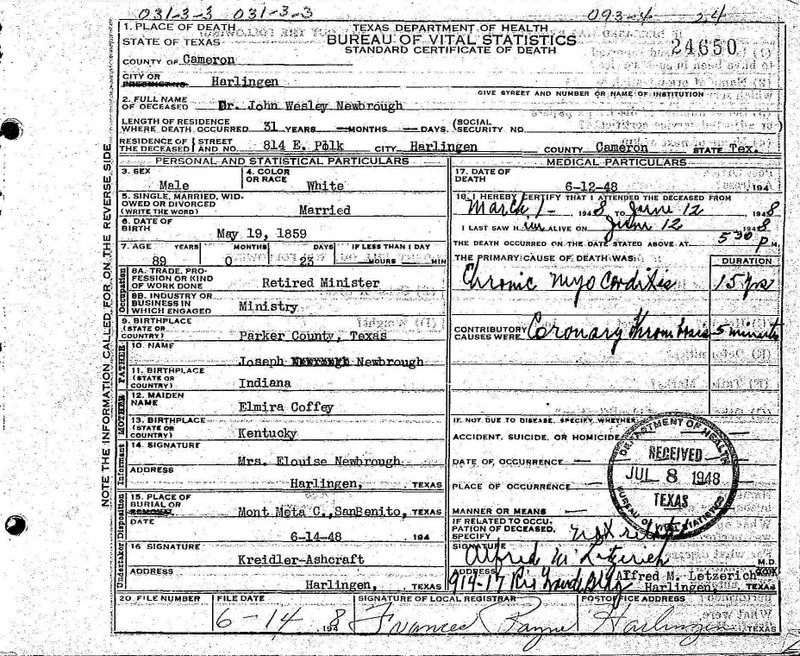 031-3-3 031-3-3 093-4 24
1. PLACE OF DEATH
STATE OF TEXAS
TEXAS DEPARTMENT OF HEALTH
BUREAU OF VITAL STATISTICS
STANDARD CERTIFICATE OF DEATH
24650
COUNTY OF Cameron
CITY OR PRECINCT NO. Harlingen
GIVE STREET AND NUMBER OR NAME OF INSTITUTION
2. FULL NAME OF DECEASED Dr. John Wesley Newbrough
LENGTH OF RESIDENCE WHERE DEATH OCCURRED 31 YEARS —MONTHS —DAYS. (SOCIAL SECURITY NO.
RESIDENCE OF THE DECEASED STREET AND NO. 814 E. Polk CITY Harlingen COUNTY Cameron STATE Tex.
PERSONAL AND STATISTICAL PARTICULARS
3. SEX Male
4. COLOR OR RACE White
5. SINGLE, MARRIED, WIDOWED OR DIVORCED (WRITE THE WORD) Married
6. DATE OF BIRTH May 19, 1859
7. AGE YEARS MONTHS DAYS IF LESS THAN 1 DAY
89 0 23 HOURS MIN
8A. TRADE, PROFESSION OR KIND OF WORK DONE Retired Minister
8B. INDUSTRY OR BUSINESS IN WHICH ENGAGED Ministry
9. BIRTHPLACE (STATE OR COUNTRY) Parker County, Texas
10. NAME Joseph Newbrough
11. BIRTHPLACE (STATE OR COUNTRY) Indiana
12. MAIDEN NAME Elmira Coffey
13. BIRTHPLACE (STATE OR COUNTRY) Kentucky
14. SIGNATURE Mrs. Elouise Newbrough
ADDRESS Harlingen, TEXAS
15. PLACE OF BURIAL OR REMOVAL Mont Meta C., SanBenito, TEXAS
DATE 6-14-48 194
16 SIGNATURE Kreidler-Ashcraft
ADDRESS Harlingen, TEXAS
Occupation
FATHER
MOTHER
Informant
Undertaker Disposition
NOTE THE INFORMATION CALLED FOR ON THE REVERSE SIDE
MEDICAL PARTICULARS
17. DATE OF DEATH 6-12-48 194
18. I HEREBY CERTIFY THAT I ATTENDED THE DECEASED FROM
March 1- 1948 TO June 12 1948
I LAST SAW HIM ALIVE ON June 12 1948
THE DEATH OCCURRED ON THE DATE STATED ABOVE AT 5:30 P.M.
THE PRIMARY CAUSE OF DEATH WAS: DURATION
Chronic Myocarditis 15 yrs
CONTRIBUTORY CAUSES WERE: Coronary Thrombosis 5 minutes
IF NOT DUE TO DISEASE, SPECIFY WHETHER:
ACCIDENT, SUICIDE, OR HOMICIDE
DATE OF OCCURRENCE
PLACE OF OCCURRENCE
MANNER OR MEANS
DEPARTMENT OF HEALTH
RECEIVED
JUL 8 1948
TEXAS
BUREAU OF VITAL STATISTICS
IF RELATED TO OCCUPATION OF DECEASED, SPECIFY
SIGNATURE Alfred M Letzerich M.D.
ADDRESS 914-17 Rio Grande Bldg Alfred M. Letzerich
Harlingen, TEXAS
20 FILE NUMBER
FILE DATE 6-14 1948
SIGNATURE OF LOCAL REGISTRAR Frances Payne
POSTOFFICE ADDRESS Harlingen